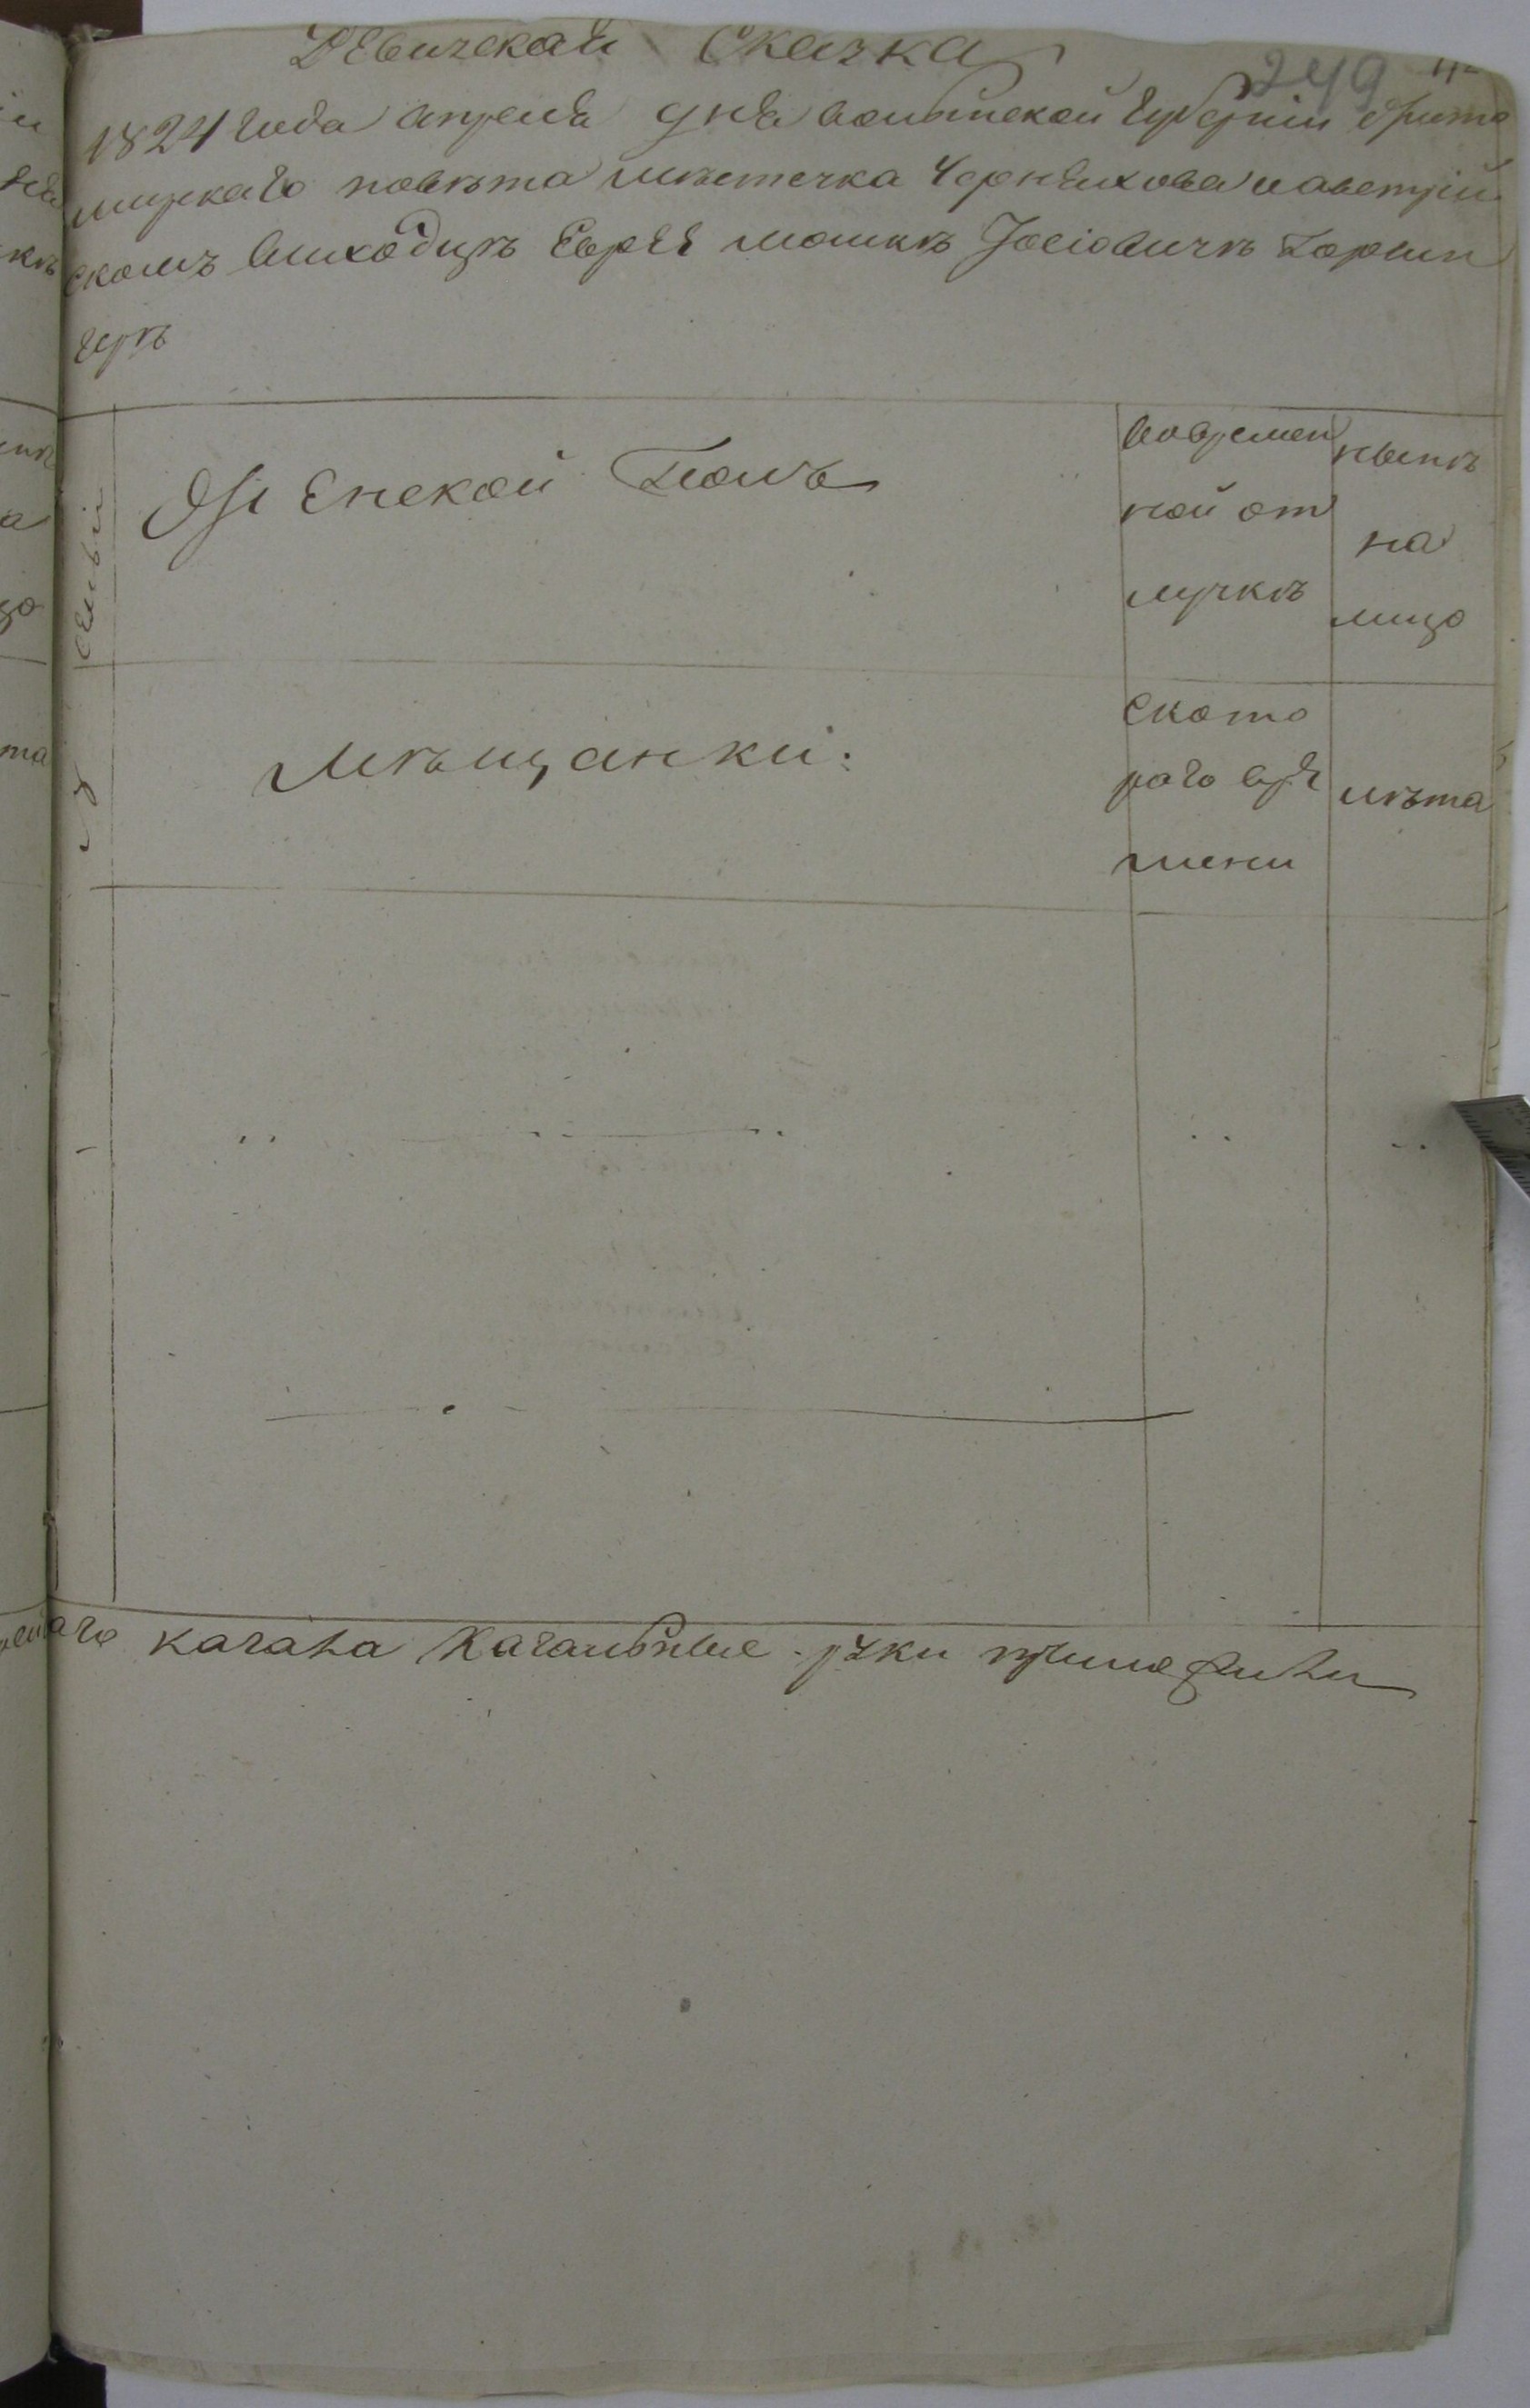 Ревизская Сказка
249
1824 года апреля дня волынской губернии жито
мирскаго повѣта мѣстечка Черняхова о австрій
скомъ выходцѣ Еврее мошкѣ Іосіовичѣ Горлин
герѣ
семьи
Женской Полъ
вовремен
ной от
лучкѣ
нынѣ
на
лицо
мѣщанки:
ското
раго вре
мени
лѣта
1
каго кагала Кагальные руки приложили